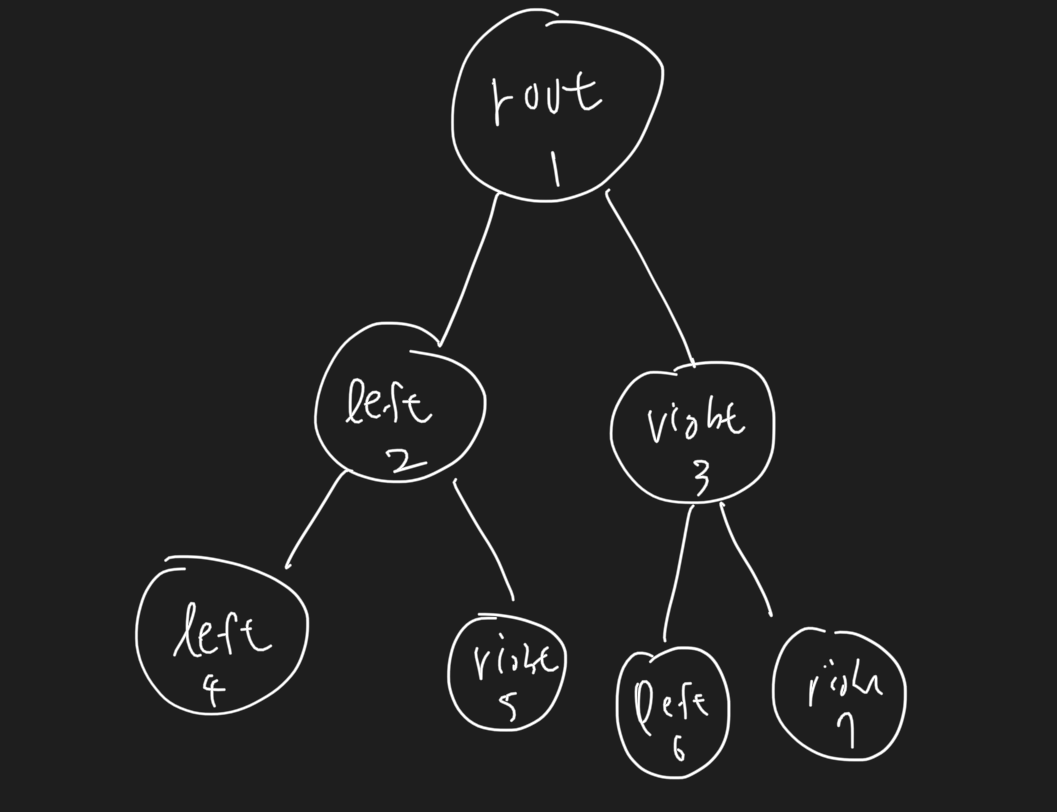 rout
1
left
2
right
3
left
4
right
5
left
6
righ
7